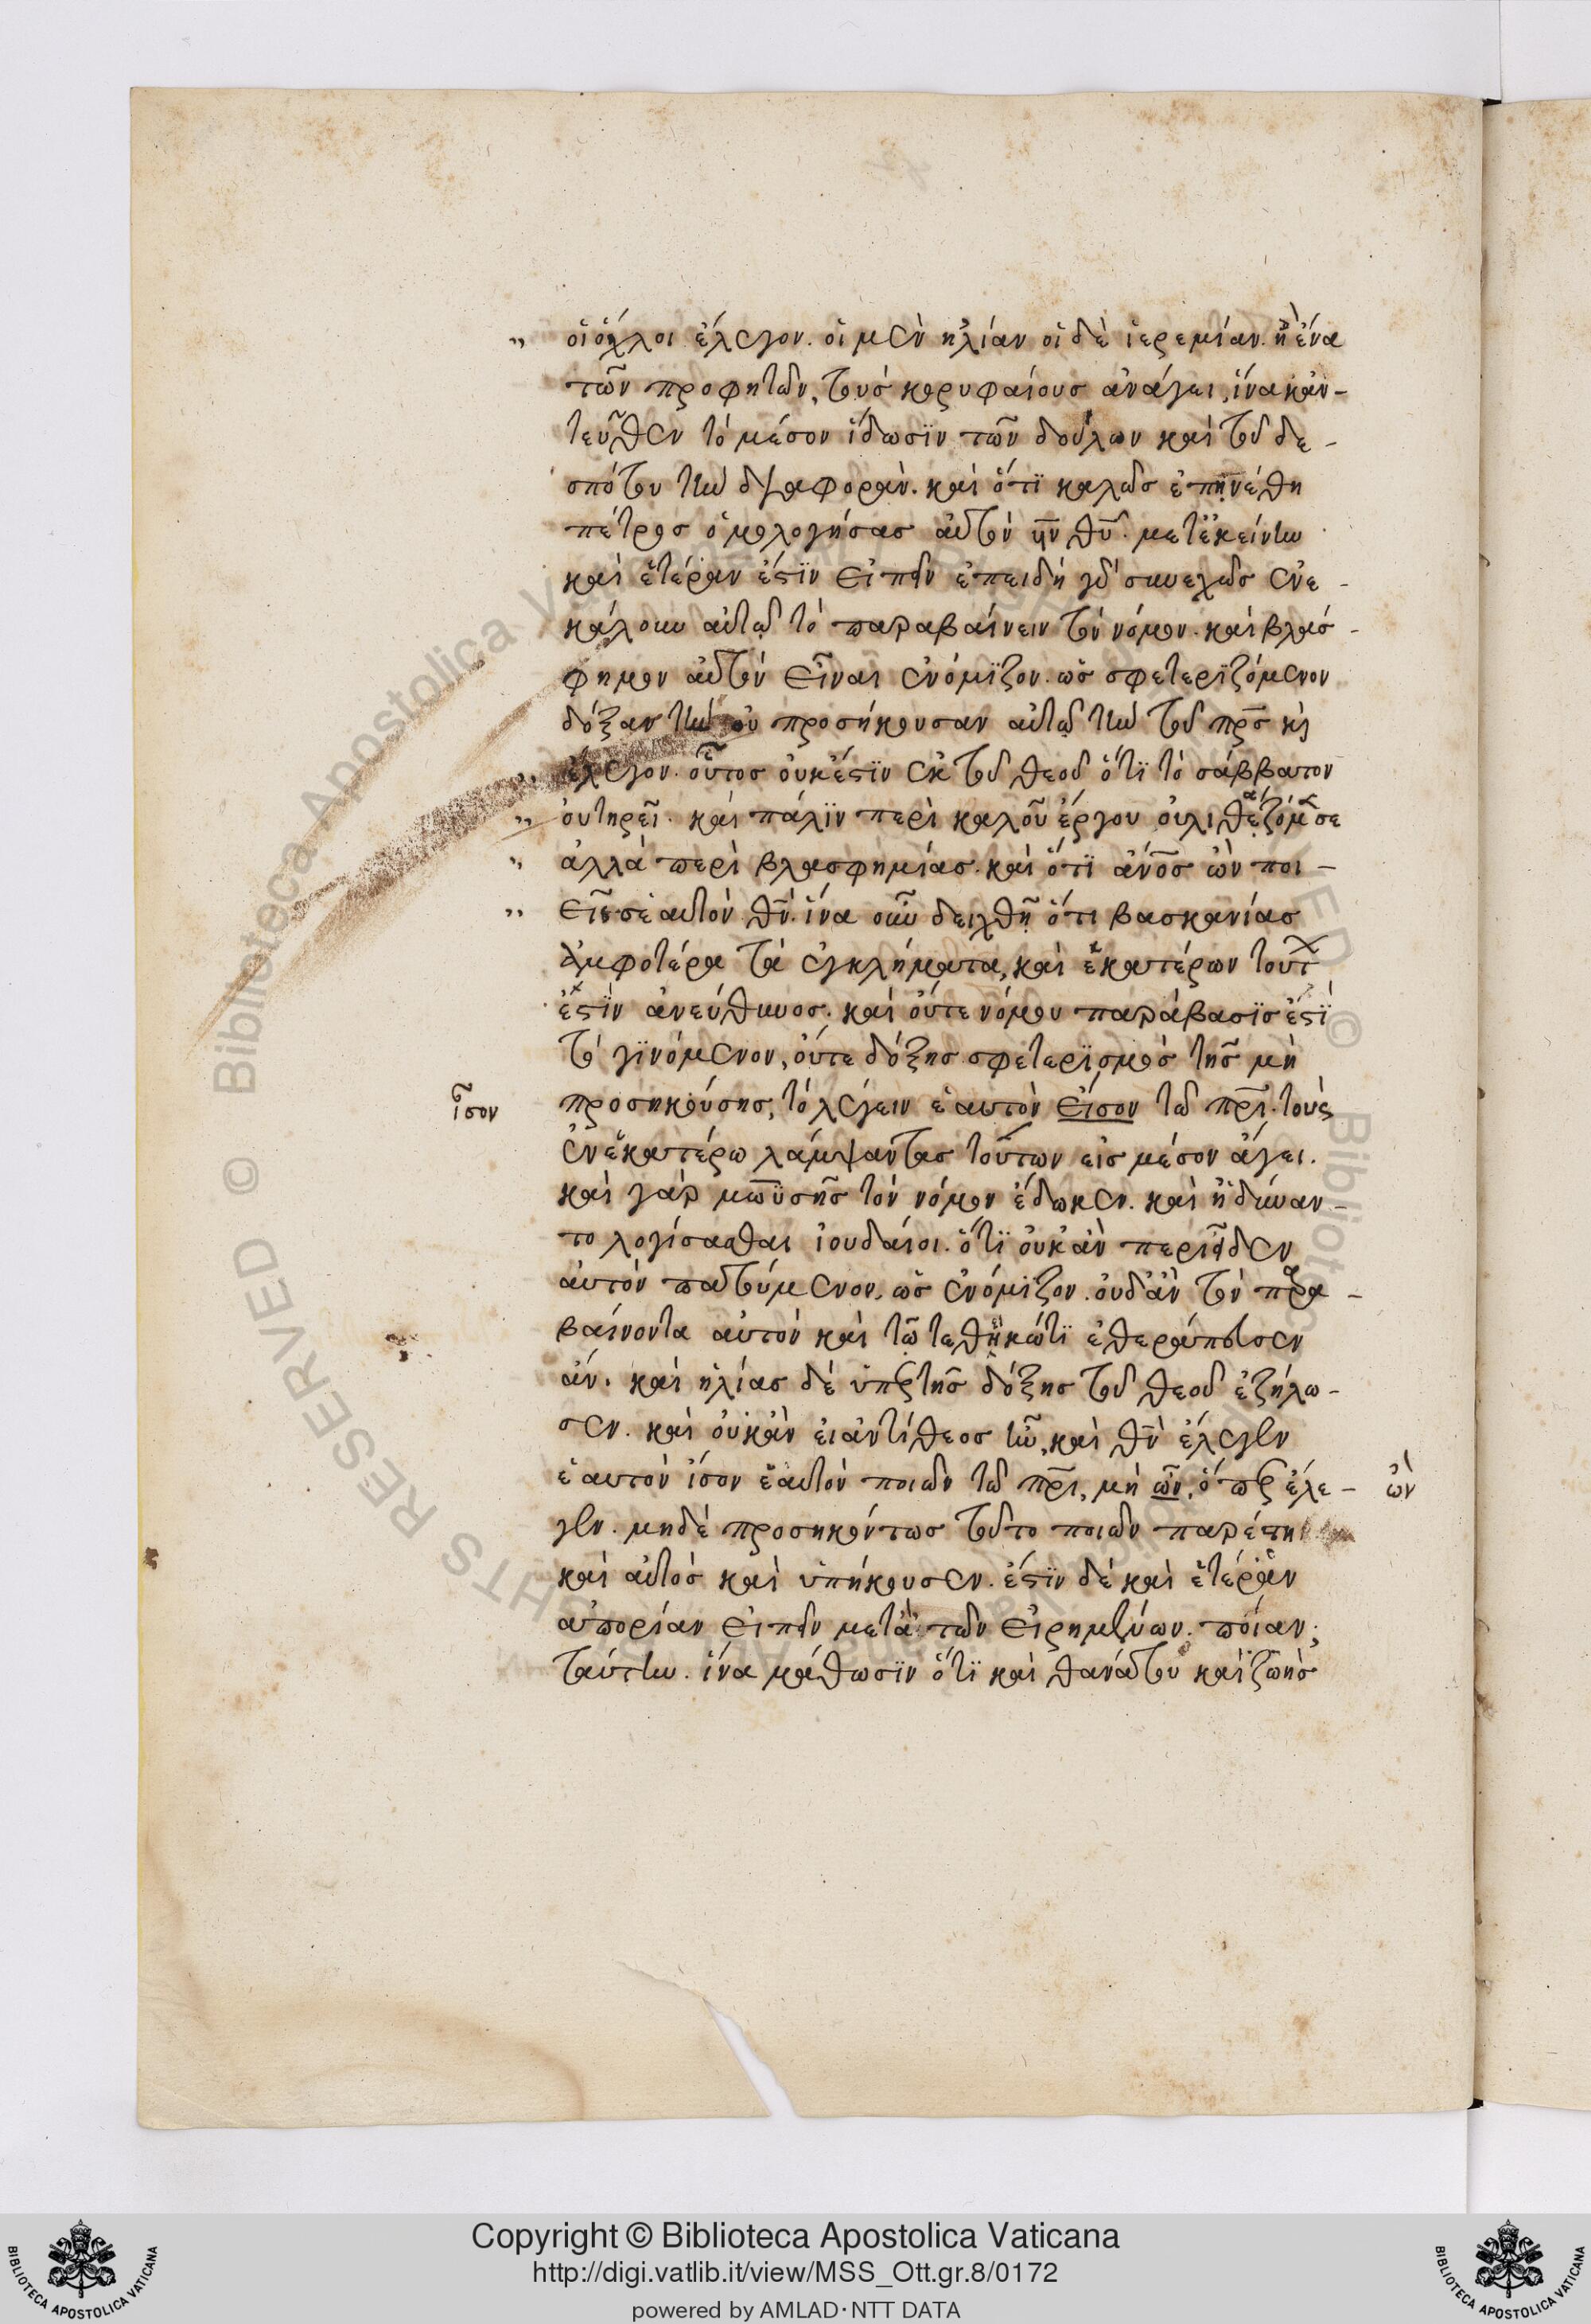 οἱ ὄχλοι ἔλεγον. οἱ μὲν ἠλίαν οἱ δὲ ἱερεμίαν. ἢ ἕνα
τῶν προφητῶν, τοὺσ κορυφαίουσ ἀνάγει, ἵνα κἀν-
τεῦθεν τὸ μέσον ἴδωσϊν τῶν δούλων καὶ τοῦ δε-
σπότου τὴν διαφορὰν. καὶ ὅτϊ καλῶσ ἐπῃνέθη
πέτροσ ὁμολογήσασ αὐτὸν υν θυ. μετ ἐκείνην
καὶ ἑτέραν ἔστϊν εἰπεῖν ἐπειδὴ γοῦ συνεχῶσ ἐνε-
κάλουν αὐτῷ τὸ παραβαίνειν τὸν νόμον. καὶ βλάσ-
φημον αὐτὸν εἶναι ἐνόμϊζον. ὡσ σφετερϊζόμενον
δόξαν τὴν οὐ προσήκουσαν αὐτῷ τὴν τοῦ πρσ κὶ
ἔλεγον. οὗτοσ οὐκ ἔστϊν ἐκ τοῦ θεοῦ ὅτϊ τὸ σάββατον
οὐ τηρεῖ. καὶ πάλϊν περὶ καλοῦ ἔργου οὐ λιθάζόμε σε
ἀλλὰ περὶ βλασφημίασ. καὶ ὅτϊ ἀνοσ ὢν ποι-
εῖσ σὲ αυτὸν θν. ἵνα οὖν δειχθῇ ὅτι βασκανίασ
ἀμφοτέρα τὰ ἐγκλήματα, καὶ ἑκατέρων τουτ
ἐστϊν ἀνεύθυνοσ. καὶ οὔτε νόμου παράβασϊσ ἐστϊ
τὸ γϊνόμενον, οὔτε δόξησ σφετερϊσμὸσ τῆσ μὴ
προσηκούσησ, τὸ λέγειν ἑαυτὸν εἶσον τῶ πρι. τοὺς
ἶσον
ἐν ἑκατέρω λάμψαντασ τούτων εἰσ μέσον ἄγει.
καὶ γὰρ μωϋσῆσ τὸν νόμον ἔδωκεν. καὶ ἠδύναν-
το λογίσασθαι ἰουδαίοι. ὅτϊ οὐκ ἂν περιεῖδεν
αὐτὸν πατούμενον, ὡσ ἐνόμϊζον. οὐδ ἂν τὸν παρα-
βαίνοντα αὐτὸν καὶ τῶ τεθηκώτϊ ἐθεράπευσεν
ἄν. καὶ ἠλίασ δὲ ὑπὲρ τῆσ δόξησ τοῦ θεοῦ ἐζήλω-
σεν. καὶ οὐκ ἂν εἰ ἀντίθεοσ ἦν, καὶ θν ἔλεγεν
ἑαυτὸν ἴσον ἑαυτὸν ποιῶν τῶ πρι, μὴ ὦν, ὅπερ ἔλε-
ὢν
γεν. μηδὲ προσηκόντωσ τοῦτο ποιῶν παρέστη
καὶ αὐτὸσ καὶ ὑπήκουσεν. ἔστϊν δὲ καὶ ἑτέραν
απορίαν εἰπεῖν μετὰ τῶν εἰρημένων. ποίαν;
ταύτην. ἵνα μάθωσϊν ὅτϊ καὶ θανάτου καὶ ζωῆσ
Copyright © Biblioteca Apostolica Vaticana
http://digi.vatlib.it/view/MSS_Ott.gr.8/0172
powered by AMLAD·NTT DATA